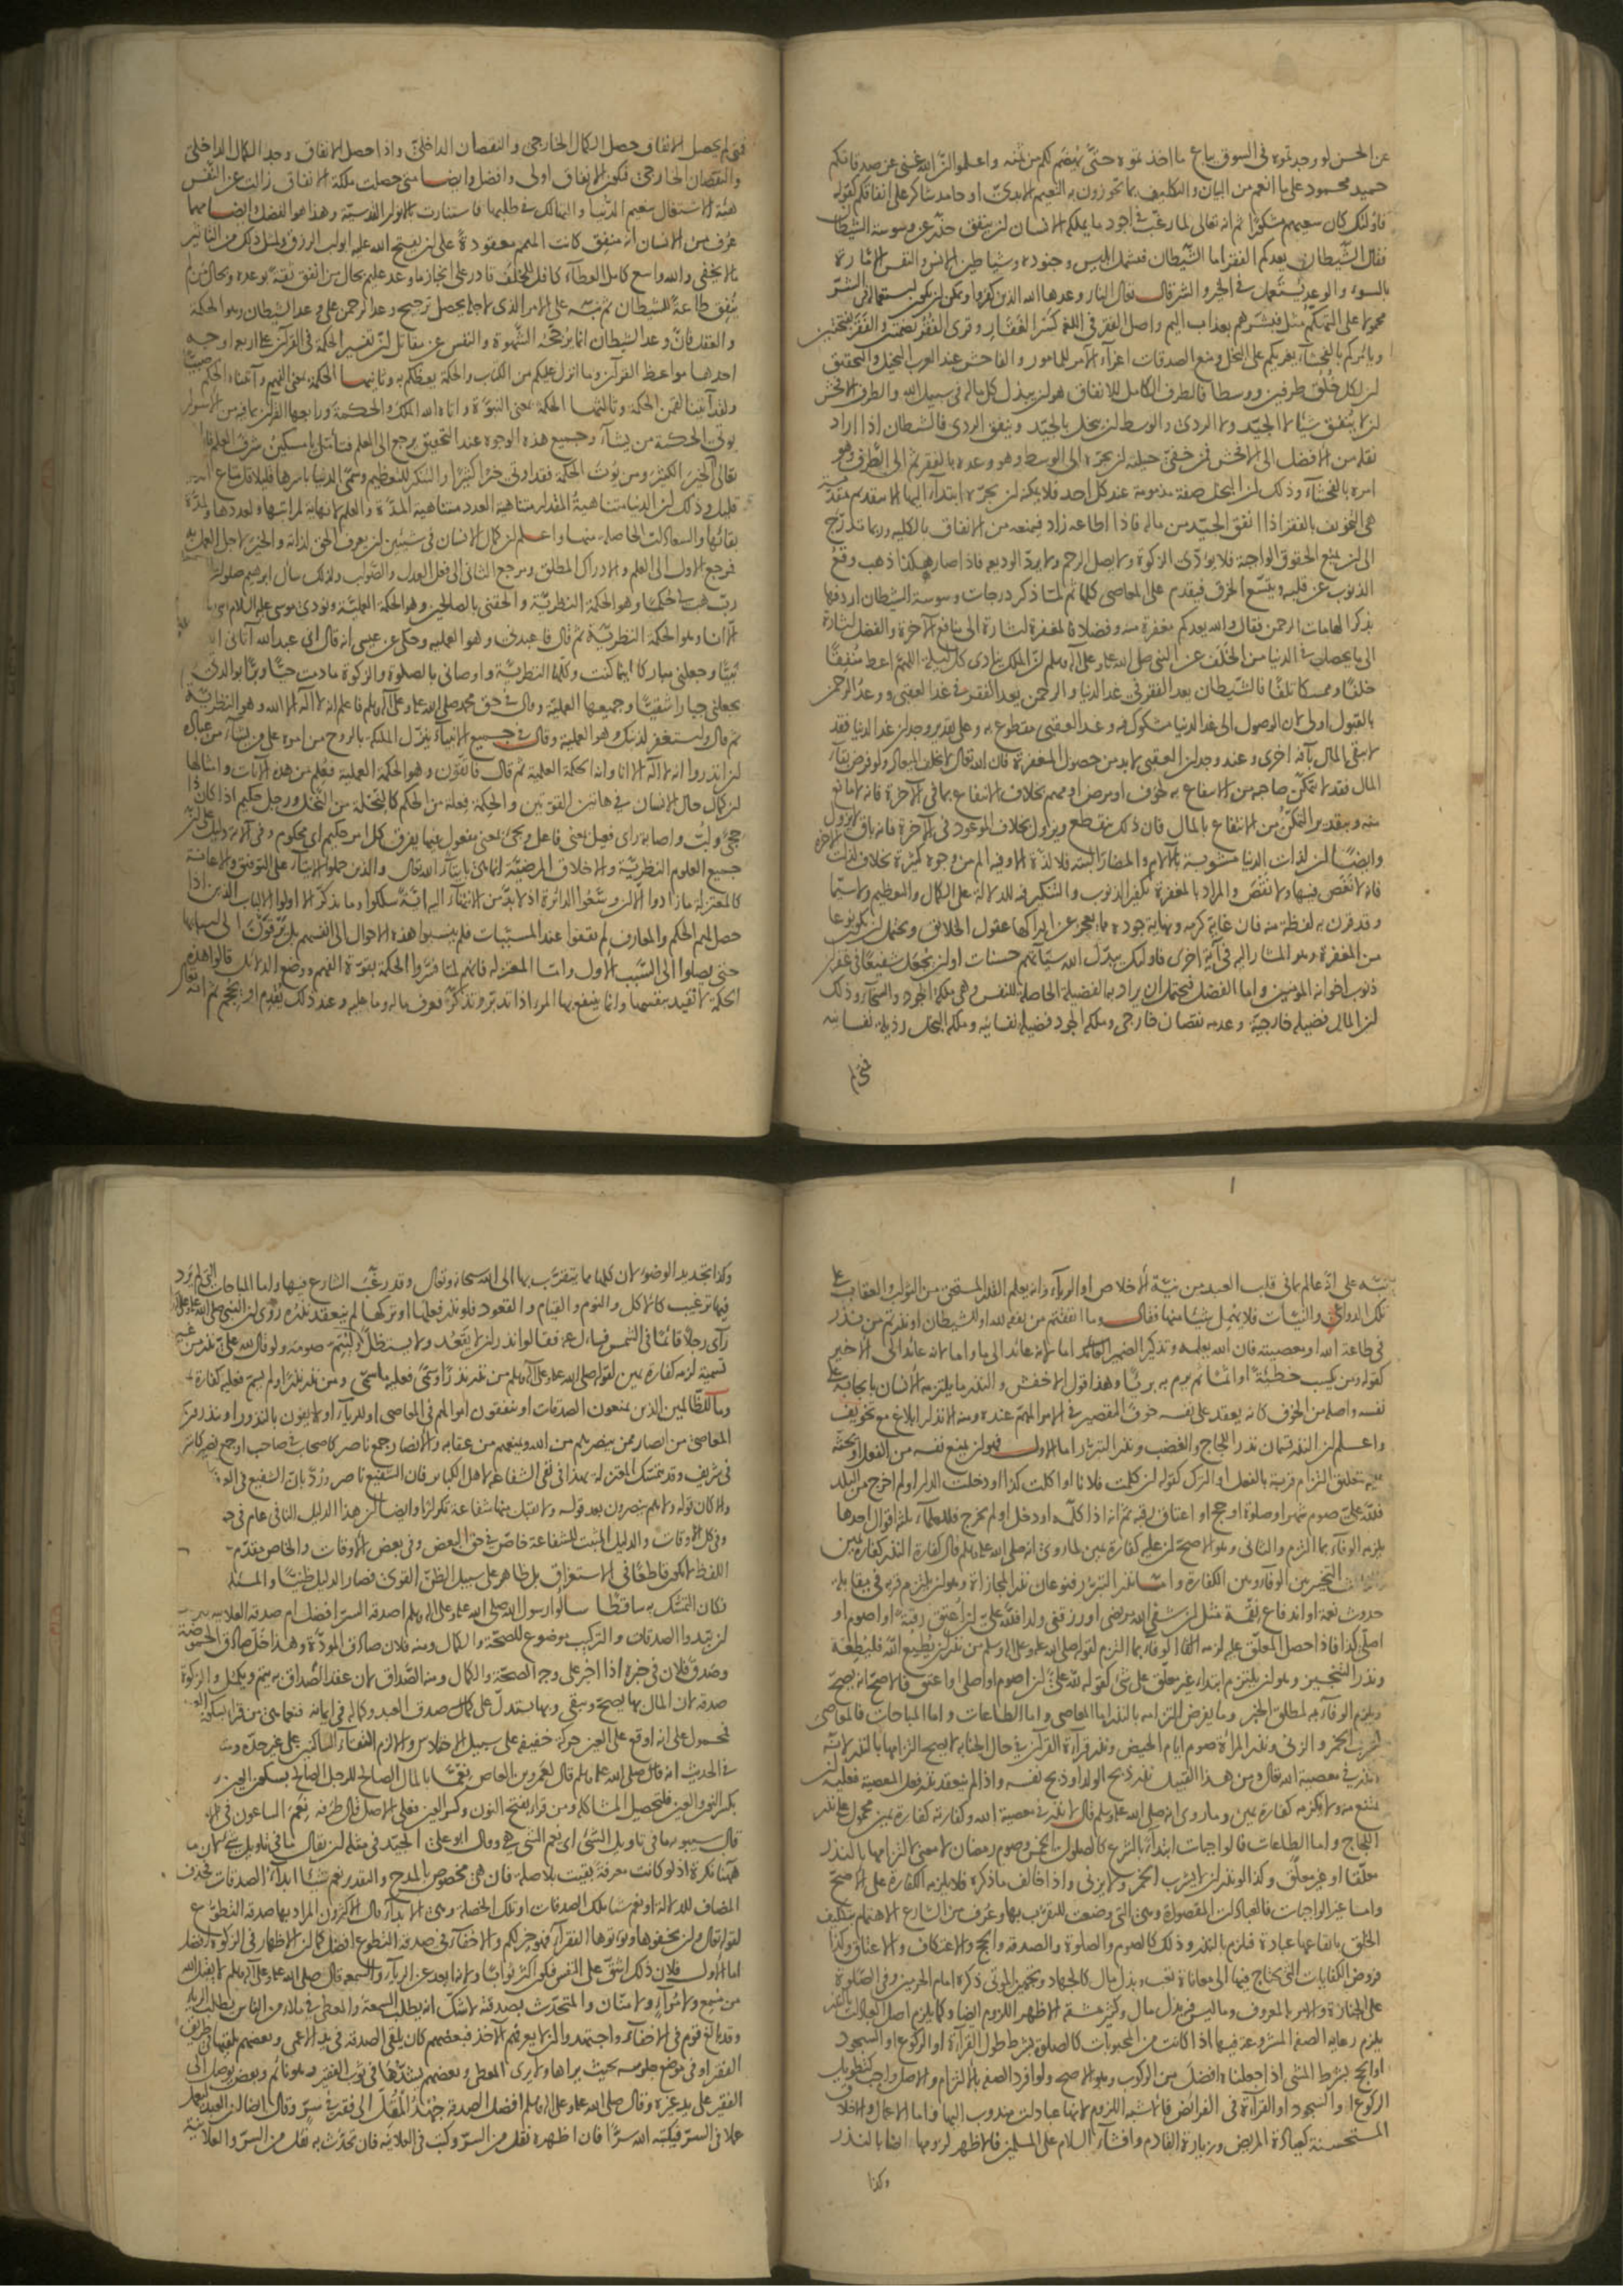 عن الحسن لو وجدتموه في السوق يباع ما اخذتموه حتى يهضم لكم من ثمنه واعلموا ان الله غني عن صدقاتكم
حميد محمود على ما انعم من البيان والتكليف بما تحوزون به النعيم الابدي او حامد شاكر على انفاقكم كقوله
فاولئك كان سعيهم مشكورا ثم انه تعالى لما رغب في اجود ما يملكه الانسان ان ينفق حذر عن وسوسة الشيطان
فقال الشيطان يعدكم الفقر اما الشيطان فيشمل ابليس وجنوده وشياطين الانس والنفس الامارة
بالسوء والوعد يستعمل في الخير والشر قال تعالى النار وعدها الله الذين كفروا ويمكن ان يكون استعماله في الشر
محمولا على التهكم مثل فبشرهم بعذاب اليم واصل الفقر في اللغة كسر الفقار وقرئ الفقر بضمتين والفقر بفتحتين
ويامركم بالفحشاء يغريكم على البخل ومنع الصدقات اغراء الآمر للمامور والفاحش عند العرب البخيل والتحقيق
ان لكل خلق طرفين ووسطا فالطرف الكامل للانفاق هو ان يبذل كل ماله في سبيل الله والطرف الافحش
ان لا ينفق شيئا لا الجيد ولا الردئ والوسط ان يبخل بالجيد وينفق الردي فالشيطان اذا اراد
نقله من الافضل الى الافحش فمن خفي حيلته ان يجره الى الوسط وهو وعده بالفقر ثم الى الطرف وهو
امره بالفحشاء وذلك ان البخل صفة مذمومة عند كل احد فلا يمكنه ان يجره ابتداء اليها الا بتقديم مقدمة
هي التخويف بالفقر اذا انفق الجيد من ماله فاذا اطاعه زاد فيمنعه من الانفاق بالكلية وربما تدرج
الى ان يمنع الحقوق الواجبة فلا يؤدي الزكوة ولا يصل الرحم ولا يرد الوديعة فاذا صار هكذا ذهب وقع
الذنوب عن قلبه ويتسع الخرق فيقدم على المعاصي كلها ثم لما ذكر درجات وسوسة الشيطان اردفها
بذكر الهامات الرحمن فقال والله يعدكم مغفرة منه وفضلا فالمغفرة اشارة الى منافع الآخرة والفضل اشارة
الى ما يحصل في الدنيا من الخلف عن النبي صلى الله عليه وعلى آله وسلم ان الملك ينادي كل ليلة اللهم اعط منفقا
خلفا وممسكا تلفا فالشيطان يعد الفقر في غد الدنيا والرحمن يعد المغفرة في غد العقبى ووعد الرحمن
بالقبول اولى لان الوصول الى غد الدنيا مشكوك فيه وغد العقبى مقطوع به وعلى تقدير وجدان غد الدنيا فقد
لا يبقى المال بآفة اخرى وعند وجدان العقبى لا بد من حصول المغفرة فان الله تعالى لا يخلف الميعاد ولو فرض بقاء
المال فقد لا يتمكن صاحبه من الانتفاع به لخوف او مرض او مهم بخلاف الانتفاع بما في الآخرة فانه لا مانع
منه وبتقدير التمكن من الانتفاع بالمال فان ذلك ينقطع ويزول بخلاف الموعود في الآخرة فانه باق لا يزول
وايضا ان لذات الدنيا مشوبة بالآلام والمضار البتة فلا لذة الا وفيها الم من وجوه كثيرة بخلاف لذات الآخرة
فانه لا نغص فيها ولا نقص والمراد بالمغفرة تكفير الذنوب والتنكير فيه للدلالة على الكمال والتعظيم ولا سيما
وقد قرن به لفظة منه فان غاية كرمه ونهاية جوده مما يعجز عن ادراكها عقول الخلائق ويحتمل ان يكون نوعا
من المغفرة وهو المشار اليه في آية اخرى فاولئك يبدل الله سيآتهم حسنات او ان يجعل شفيعا في غفران
ذنوب اخوانه المؤمنين واما الفضل فيحتمل ان يراد به الفضيلة الحاصلة للنفس وهي ملكة الجود والسخاء وذلك
ان المال فضيلة خارجية وعدمه نقصان خارجي وملكة الجود فضيلة نفسانية وملكة البخل رذيلة نفسانية
فمتى لم
فمتى لم يحصل الانفاق حصل الكمال الخارجي والنقصان الداخلي واذا حصل الانفاق وجد الكمال الداخلي
والنقصان الخارجي فيكون الانفاق اولى وافضل وايضا متى حصلت ملكة الانفاق زالت عن النفس
هيئة الاشتغال بنعيم الدنيا والتهالك في طلبها فاستنارت بالانوار القدسية وهذا هو الفضل وايضا مهما
عرف من الانسان انه منفق كانت الهمم معقودة على ان يفتح الله عليه ابواب الرزق ولمثل ذلك من التاثير
ما لا يخفى والله واسع كامل العطاء كافل للخلف قادر على انجاز ما وعد عليم بحال من انفق ثقة بوعده وبحال من لم
ينفق طاعة للشيطان ثم نبه على الامر الذي لاجله يحصل ترجيح وعد الرحمن على وعد الشيطان وهو الحكمة
والعقل فان وعد الشيطان انما يرجحه الشهوة والنفس عن مقاتل ان تفسير الحكمة في القرآن على اربعة اوجه
احدها مواعظ القرآن وما انزل عليكم من الكتاب والحكمة يعظكم به وثانيها الحكمة بمعنى الفهم وآتيناه الحكم صبيا
ولقد آتينا لقمن الحكمة وثالثها الحكمة بمعنى النبوة واتاه الله الملك والحكمة ورابعها القرآن بما فيه من الاسرار
يؤتي الحكمة من يشاء وجميع هذه الوجوه عند التحقيق يرجع الى العلم فتامل يا مسكين شرف العلم فان
تعالى الخير الكثير ومن يؤت الحكمة فقد اوتي خيرا كثيرا والتنكير للتعظيم وسمى الدنيا باسرها قليلا قل متاع الدنيا
قليل وذلك ان الدنيا متناهية المقدار متناهية العدد متناهية المدة والعلم لا نهاية لمراتبها وعددها ومدة
بقائها والسعادات الحاصلة منها واعلم ان كمال الانسان في شيئين ان يعرف الحق لذاته والخير لاجل العمل به
فمرجع الاول الى العلم والادراك المطلق ومرجع الثاني الى فعل العدل والصواب ولذلك سأل ابرهيم صلوات
رب هب لي حكما وهو الحكمة النظرية والحقني بالصالحين وهو الحكمة العملية ونودي موسى عليه السلام
الا انا وهو الحكمة النظرية ثم قال فاعبدني وهو العملية وحكى عن عيسى انه قال اني عبد الله آتاني
نبيا وجعلني مباركا اينما كنت وكلها النظرية واوصاني بالصلوة والزكوة ما دمت حيا وبرا بوالدتي
يجعلني جبارا شقيا وجميعها العملية وقال في حق محمد صلى الله عليه وعلى آله وسلم فاعلم انه لا اله الا الله وهو النظرية
ثم قال واستغفر لذنبك وهو العملية وقال في جميع الانبياء ينزل الملئكة بالروح من امره على من يشاء من عباده
ان انذروا انه لا اله الا انا وانه الحكمة العلمية ثم قال فاتقون وهو الحكمة العملية فعلم من هذه الآيات وامثالها
ان كمال حال الانسان في هاتين القوتين والحكمة فعلة من الحكم كالنحلة من النحل ورجل حكيم اذا كان ذا
حجى ولب واصابة راي فعيل بمعنى فاعل ويجئ بمعنى مفعول فيها يفرق كل امر حكيم اي محكوم وفي الآية دليل على ان
جميع العلوم النظرية والاخلاق المرضية انما هي بايتاء الله تعالى والذين حملوا الايتاء على التوفيق والاعانة
كالمعتزلة ما زادوا الا ان وسعوا الدائرة اذ لا بد من الانتهاء اليه اية سلكوا وما يذكر الا اولوا الالباب الذين اذا
حصل لهم الحكم والمعارف لم يقفوا عند المسببات فلم ينسبوا هذه الاحوال الى انفسهم بل يترقون الى اسبابها
حتى يصلوا الى السبب الاول واما المعتزلة فانهم لما فسروا الحكمة بقوة الفهم ووضع الدلائل قالوا هذه
الحكمة لا تفيد بنفسها وانما ينتفع بها المرء اذا تدبر وتذكر فعرف ما له وما عليه وعند ذلك يقدم او يحجم ثم انه تعالى
نبه على انه عالم بما في قلب العبد من نية الاخلاص او الرياء وانه يعلم القدر المستحق من الثواب والعقاب على
تلك الدواعي والنيات فلا يهمل شيئا منها فقال وما انفقتم من نفقة لله او للشيطان او نذرتم من نذر
في طاعة الله او معصيته فان الله يعلمه وتذكير الضمير العائد اما لانه عائد الى ما واما لانه عائد الى الاخير
كقوله ومن يكسب خطيئة او اثما ثم يرم به بريئا وهذا قول الاخفش والنذر ما يلتزمه الانسان بايجابه على
نفسه واصله من الخوف كانه يعقد على نفسه خوف التقصير في الامر المهم عنده ومنه الانذار ابلاغ مع تخويف
واعلم ان النذر قسمان نذر اللجاج والغضب ونذر التبرر اما الاول فهو ان يمنع نفسه من الفعل او يحثه
عليه بتعليق التزام قربة بالفعل او الترك كقوله ان كلمت فلانا او اكلت كذا او دخلت الدار او لم اخرج من البلد
فلله علي صوم شهر او صلوة او حج او اعتاق رقبة ثم انه اذا كلمه او دخل او لم يخرج فللعلماء ثلثة اقوال احدها
يلزمه الوفاء بما التزم والثاني وهو الاصح ان عليه كفارة يمين لما روي انه صلى الله عليه وسلم قال كفارة النذر كفارة يمين
التخيير بين الوفاء وبين الكفارة واما نذر التبرر فنوعان نذر المجازاة وهو ان يلتزم قربة في مقابلة
حدوث نعمة او اندفاع نقمة مثل ان شفى الله مريضي او رزقني ولدا فلله علي ان اعتق رقبة او اصوم او
اصلي كذا فاذا حصل المعلق عليه لزمه الوفاء بما التزم لقوله صلى الله عليه وعلى آله وسلم من نذر ان يطيع الله فليطعه
ونذر التنجيز وهو ان يلتزم ابتداء غير معلق على شئ كقوله لله علي ان اصوم او اصلي او اعتق فالاصح انه يصح
ويلزم الوفاء به لمطلق الخبر وما يفرض التزامه بالنذر اما المعاصي واما الطاعات واما المباحات فالمعاصي
كشرب الخمر والزنى ونذر المرأة صوم ايام الحيض ونذر قراءة القرآن في حال الجنابة لا يصح التزامها بالنذر لانه
لا نذر في معصية الله تعالى ومن هذا القبيل نذر ذبح الولد او ذبح نفسه واذا لم ينعقد نذر فعل المعصية فعليه ان
يمتنع منه ولا يلزمه كفارة يمين وما روي انه صلى الله عليه وسلم قال لا نذر في معصية الله وكفارته كفارة يمين محمول على نذر
اللجاج واما الطاعات فالواجبات ابتداء بالشرع كالصلوات الخمس وصوم رمضان لا معنى لالتزامها بالنذر
معلقا او غير معلق وكذا لو نذر ان لا يشرب الخمر ولا يزني واذا خالف ما ذكره فلا يلزمه الكفارة على الاصح
واما غير الواجبات فالعبادات المقصودة وهي التي وضعت للتقرب بها وعرف من الشارع الاهتمام بتكليف
الخلق بايقاعها عبادة فيلزم بالنذر وذلك كالصوم والصلوة والصدقة والحج والاعتكاف والاعتاق وكذا
فروض الكفايات التي يحتاج فيها الى معاناة تعب وبذل مال كالجهاد وتجهيز الموتى ذكره امام الحرمين وفي الصلوة
على الجنازة والامر بالمعروف وما ليس فيه بذل مال وكثير مشقة الاظهر اللزوم ايضا وكما يلزم اصل العبادات بالنذر
يلزم رعاية الصفة المشروعة فيها اذا كانت من المحبوبات كالصلوة بشرط طول القراءة او الركوع او السجود
او الحج بشرط المشي اذا جعلناه افضل من الركوب وهو الاصح ولو افرد الصفة بالالتزام والاصل واجب كتطويل
الركوع او السجود او القراءة في الفرائض فالاشبه اللزوم لانها عبادات مندوب اليها واما الاعمال والاخلاق
المستحسنة كعيادة المريض وزيارة القادم وافشاء السلام على المسلمين فالاظهر لزومها ايضا بالنذر
وكذا
وكذا تجديد الوضوء لان كلها مما يتقرب بها الى الله سبحانه وتعالى وقد رغب الشارع فيها واما المباحات التي لم يرد
فيها ترغيب كالاكل والنوم والقيام والقعود فلو نذر فعلها او تركها لم ينعقد نذره روي ان النبي صلى الله عليه وعلى آله
رأى رجلا قائما في الشمس فسأل عنه فقالوا نذر ان لا يقعد ولا يستظل ولا يتكلم ويتم صومه ولو قال لله علي نذر من غير
تسمية لزمه كفارة يمين لقوله صلى الله عليه وعلى آله وسلم من نذر نذرا وسمى فعليه ما سمى ومن نذر نذرا ولم يسم فعليه كفارة
وما للظالمين الذين يمنعون الصدقات او ينفقون اموالهم في المعاصي او للرياء او لا يوفون بالنذور او ينذرون في
المعاصي من انصار ممن ينصرهم من الله ويمنعهم من عقابه والانصار جمع ناصر كاصحاب في صاحب او جمع نصير كاشراف
في شريف وقد تمسك المعتزلة بهذا في نفي الشفاعة لاهل الكبائر فان الشفيع ناصر ورد بان الشفيع في
والا كان قوله ولا هم ينصرون بعد قوله ولا يقبل منها شفاعة تكرارا وايضا ان هذا الدليل النافي عام في
وفي كل الاوقات والدليل المثبت للشفاعة خاص في حق البعض وفي بعض الاوقات والخاص مقدم
اللفظ لا يكون قاطعا في الاستغراق بل ظاهر على سبيل الظن القوي فصار الدليل ظنيا والمسئلة
فكان التمسك به ساقطا سألوا رسول الله صلى الله عليه وعلى آله وسلم اصدقة السر افضل ام صدقة العلانية
ان تبدوا الصدقات والتركيب موضوع للصحة والكمال ومنه فلان صادق المودة وهذا خل صادق الحموضة
وصدق فلان في خبره اذا اخبر على وجه الصحة والكمال ومنه الصداق لان عقد النكاح به يتم ويكمل والزكوة
صدقة لان المال بها يصح ويبقى وبها يستدل على كمال صدق العبد وكماله في ايمانه فنعما هي من قرأ بسكون العين
فمحمول على انه اوقع على العين حركة خفيفة على سبيل الاختلاس والا لزم التقاء الساكنين على غير حده
في الحديث انه قال صلى الله عليه وسلم قال لعمرو بن العاص نعما بالمال الصالح للرجل الصالح بسكون العين
بكسر النون والعين فلتحصيل المشاكلة ومن قرأ بفتح النون وكسر العين فعلى الاصل قال طرفة نعم الساعون في الامر
قال سيبويه ما في تاويل الشئ اي نعم الشئ هي وقال ابو علي الجيد في مثله ان يقال ما في تاويل شئ لان ما
ههنا نكرة اذ لو كانت معرفة بقيت بلا صلة فان هي مخصوص بالمدح والتقدير نعم شيئا ابداء الصدقات فحذف
المضاف للدلالة او نعم شيئا تلك الصدقات او تلك الخصلة وهي الابداء قال الاكثرون المراد بها صدقة التطوع
لقوله تعالى وان تخفوها وتؤتوها الفقراء فهو خير لكم والاخفاء في صدقة التطوع افضل كما ان الاظهار في الزكوة افضل
اما الاول فلان ذلك اشق على النفس فيكون اكثر ثوابا ولانه ابعد عن الرياء والسمعة قال صلى الله عليه وعلى آله وسلم لا يقبل الله
من مسمع ولا مراء ولا منان والمتحدث بصدقته لا شك انه يطلب السمعة والمعطي في ملاء من الناس يطلب الرياء
وقد بالغ قوم في الاخفاء واجتهدوا ان لا يعرفهم الآخذ فبعضهم كان يلقي الصدقة في يد الاعمى وبعضهم يلقيها في طريق
الفقير او في موضع جلوسه بحيث يراها ولا يرى المعطي وبعضهم يشدها في ثوب الفقير وهو نائم وبعض يوصل الى
الفقير على يد غيره وقال صلى الله عليه وعلى آله وسلم افضل الصدقة جهد المقل الى فقير في سر وقال ايضا ان العبد ليعمل
عملا في السر فيكتبه الله سرا فان اظهره نقل من السر وكتب في العلانية فان تحدث به نقل من السر والعلانية